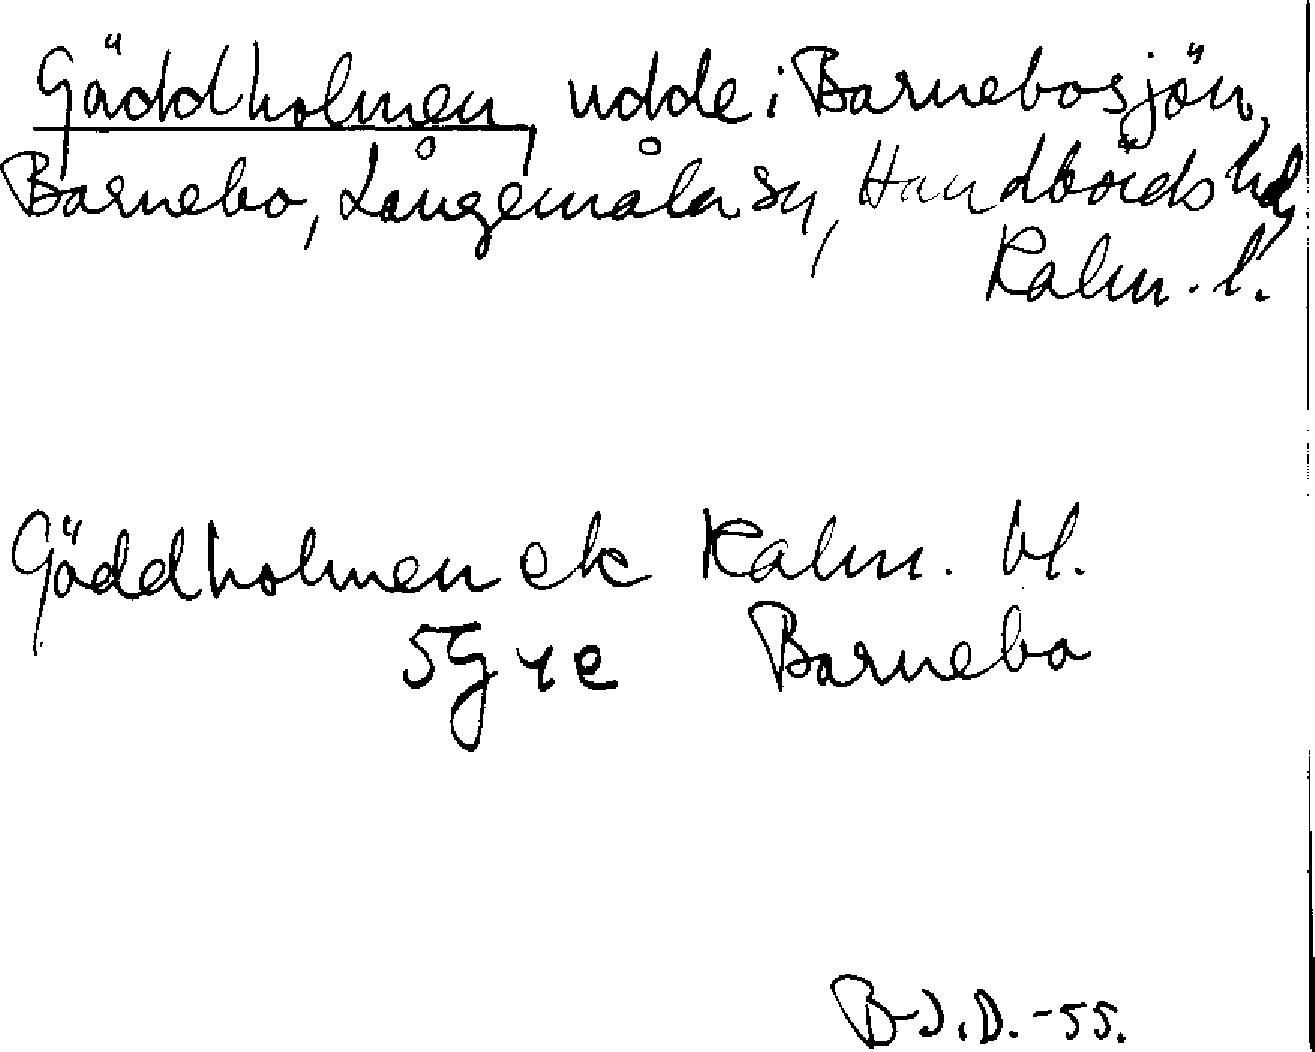 Gäddholmen, udde i Barnebosjön,
Barnebo, Långemåla sn, Handbörds hd,
Kalm. l.
Gäddholmen ek Kalm. bl.
5G 4e Barnebo
B-J.D.-55.